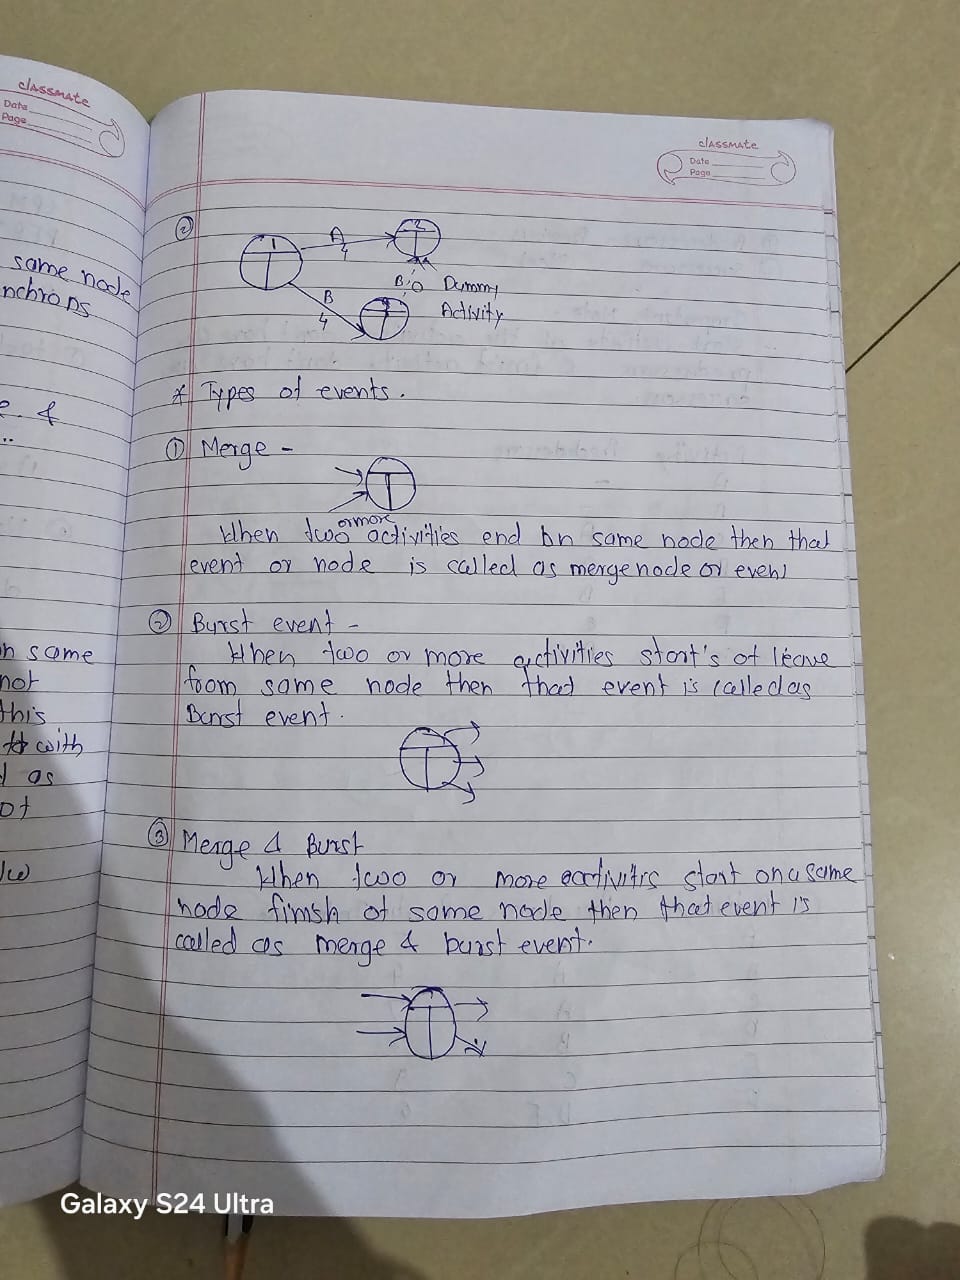 classmate
Date
Page
same node
nchrons
e. &
n same
not
this
with
d as
ot
classmate
Date
Page
②
1
A
4
2
B
4
3
Dummy
Activity
* Types of events.
① Merge -
When two or more activities end on same node then that
event or node is called as merge node or event
② Burst event -
When two or more activities start's of leave
from same node then that event is called as
Burst event.
③ Merge & Burst
When two or more activities start on a same
node finish of same node then that event is
called as merge & burst event.
Galaxy S24 Ultra